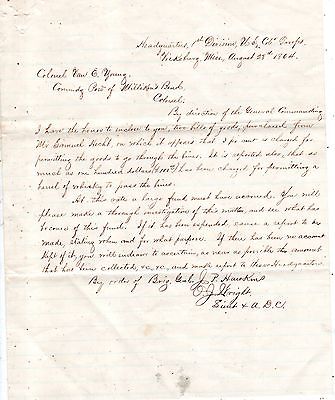 Headquarters, 1st Division, U.S. Col'd Troops
Vicksburg, Miss, August 23d 1864.
Colonel Van E. Young.
Commdg Post of Milliken's Bend.
Colonel:
By direction of the General Commanding
I have the honor to inclose to you, two bills of goods, purchased from
Mr Samuel, on which it appears that 3 per cent is claimed for
permitting the goods to go through the lines. It is reported also, that as
much as one hundred dollars has been charged for permitting a
barrel of whiskey to pass the lines.
At this rate a large fund must have accrued. You will
please made a thorough investigation of this matter, and see what has
become of this fund. If it has been expended, cause a report to be
made, stating when and for what purpose. If there has been no account
kept of it, you will endeavor to ascertain, as near as possible the amount
that has been collected, &c, &c, and make report to these Headquarters.
By order of Brig. Genl. J. P. Hawkins
J. Wright,
Lieut & A. D. C.